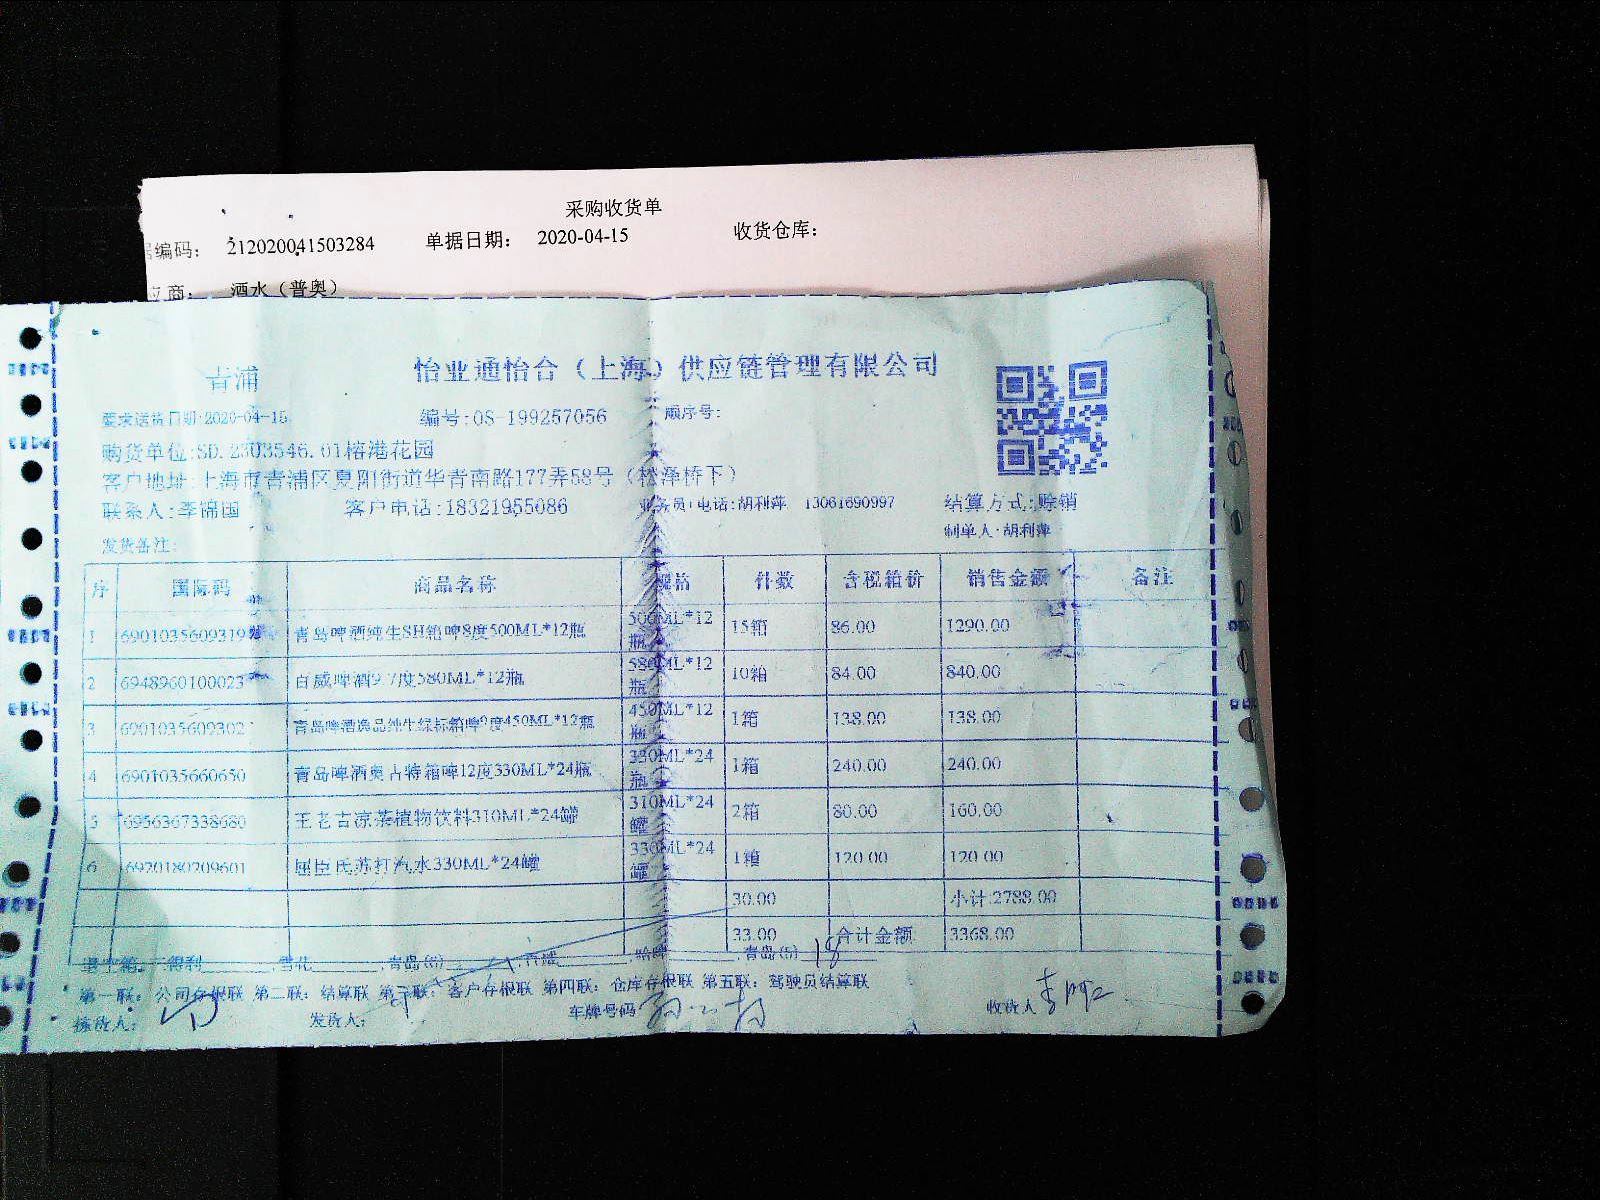 采购收货单
编码： 212020041503284 单据日期： 2020-04-15 收货仓库：
商： 酒水（普奥）
青浦 怡业通怡合（上海）供应链管理有限公司
要求送货日期:2020-04-15 编号:OS-199257056 顺序号:
购货单位:SD.2303546.01榕港花园
客户地址:上海市青浦区夏阳街道华青南路177弄58号（松泽桥下）
联系人:李锦国 客户电话:18321955086 业务员+电话:胡利萍 13061690997 结算方式:赊销
发货备注: 制单人:胡利萍
序 国际码 商品名称 规格 件数 含税箱价 销售金额 备注
1 6901035609319 青岛啤酒纯生SH箱啤8度500ML*12瓶 500ML*12瓶 15箱 86.00 1290.00
2 6948960100023 百威啤酒9.7度580ML*12瓶 580ML*12瓶 10箱 84.00 840.00
3 6901035609302 青岛啤酒逸品纯生绿标箱啤9度450ML*12瓶 450ML*12瓶 1箱 138.00 138.00
4 6901035660650 青岛啤酒奥古特箱啤12度330ML*24瓶 330ML*24瓶 1箱 240.00 240.00
5 6956367338680 王老吉凉茶植物饮料310ML*24罐 310ML*24罐 2箱 80.00 160.00
6 6920180209601 屈臣氏苏打汽水330ML*24罐 330ML*24罐 1箱 120.00 120.00
30.00 小计:2788.00
33.00 合计金额: 3368.00
,雪花 ,青岛(6) ,百威 ,哈啤 ,青岛(5) 18
第一联：公司存根联 第二联：结算联 第三联：客户存根联 第四联：仓库存根联 第五联：驾驶员结算联
拣货人： 发货人： 车牌号码 收货人